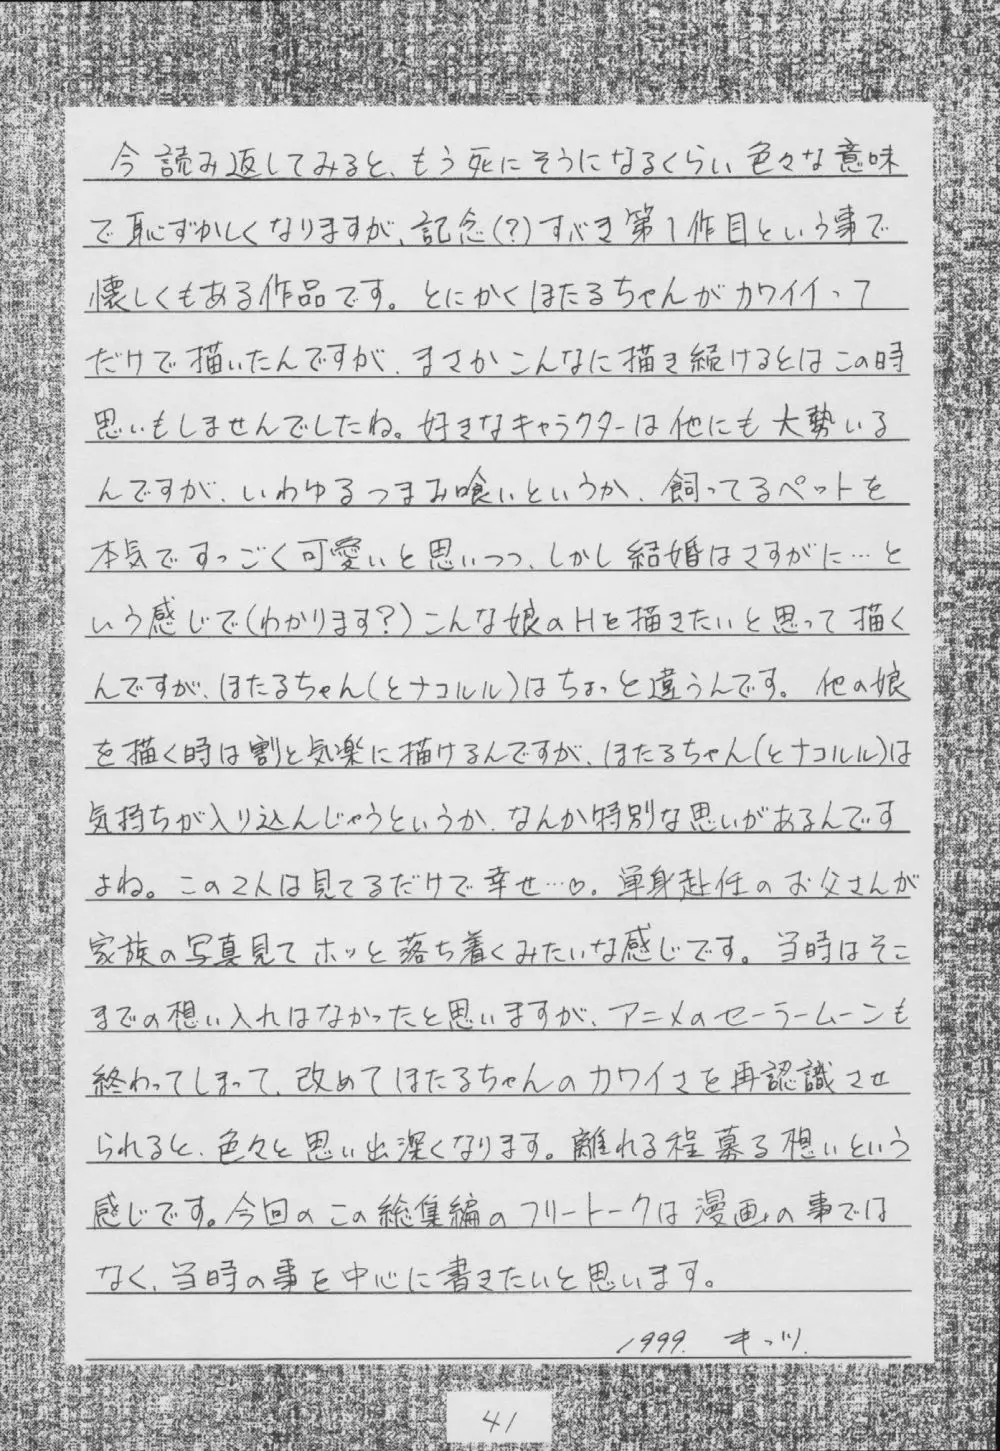 今読み返してみると、もう死にそうになるくらい色々な意味
で恥ずかしくなりますが、記念(?)すべき第1作目という事で
懐しくもある作品です。とにかくほたるちゃんがカワイイって
だけで描いたんですが、まさかこんなに描き続けるとはこの時
思いもしませんでしたね。好きなキャラクターは他にも大勢いる
んですが、いわゆるつまみ喰いというか、飼ってるペットを
本気ですっごく可愛いと思いつつ、しかし結婚はさすがに…と
いう感じで(わかります?)こんな娘のHを描きたいと思って描く
んですが、ほたるちゃん(とナコルル)はちょっと違うんです。他の娘
を描く時は割と気楽に描けるんですが、ほたるちゃん(とナコルル)は
気持ちが入り込んじゃうというか、なんか特別な思いがあるんです
よね。この2人は見てるだけで幸せ…♡。単身赴任のお父さんが
家族の写真見てホッと落ち着くみたいな感じです。当時はそこ
までの想い入れはなかったと思いますが、アニメのセーラームーンも
終わってしまって、改めてほたるちゃんのカワイさを再認識させ
られると、色々と思い出深くなります。離れる程募る想いという
感じです。今回のこの総集編のフリートークは漫画の事では
なく、当時の事を中心に書きたいと思います。
1999. キっツ.
41